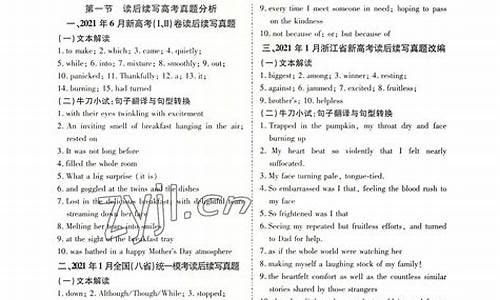 第一节 读后续写高考真题分析
一、2021 年 6 月新高考(Ⅰ,Ⅱ)卷读后续写真题
(一)文本解读
1. to make; 2. which; 3. came; 4. quietly;
5. while; 6. into; 7. mixture; 8. smoothly; 9. out;
10. panicked; 11. Thankfully; 12. a; 13. it;
14. burning; 15. had turned
(二)牛刀小试:句子翻译与句型转换
1. with their eyes twinkling with excitement
2. An inviting smell of breakfast hanging in the air;
rested on
3. It was not long before
4. filled the whole room
5. What a big surprise (it is)
6. and goggled at the twins and the dishes
7. Lost in the delicious breakfast; with delightful tears
streaming down her face
8. Melting her tears into smiles
9. at the sight of the breakfast tray
10. was bathed in a happy Mother's Day atmosphere
二、2021 年 1 月全国(八省)统一模考读后续写真题
(一)文本解读
1. down; 2. Although/Though/While; 3. stopped;
9. every time I meet someone in need; hoping to pass
on the kindness
10. not because of; or; but because of
三、2021 年 1 月浙江省新高考读后续写真题改编
(一)文本解读
1. biggest; 2. among; 3. winner; 4. resting;
5. against; 6. jammed; 7. excited; 8. fruitless;
9. brother's; 10. helpless
(二)牛刀小试:句子翻译与句型转换
1. Trapped in the pumpkin, my throat dry and face
burning up
2. My heart beat so violently that I felt nearly
suffocated.
3. My face turning pale, tongue-tied.
4. So embarrassed was I that, feeling the blood rush to
my face
5. So frightened was I that
6. Seeing my repeated but fruitless efforts, and turned
to Dad for help.
7. as if the whole world were watching her
8. making myself a laughing stock of my family!
9. the heartfelt comfort as well as the constant similar
stories shared by those strangers
zyjl.cn